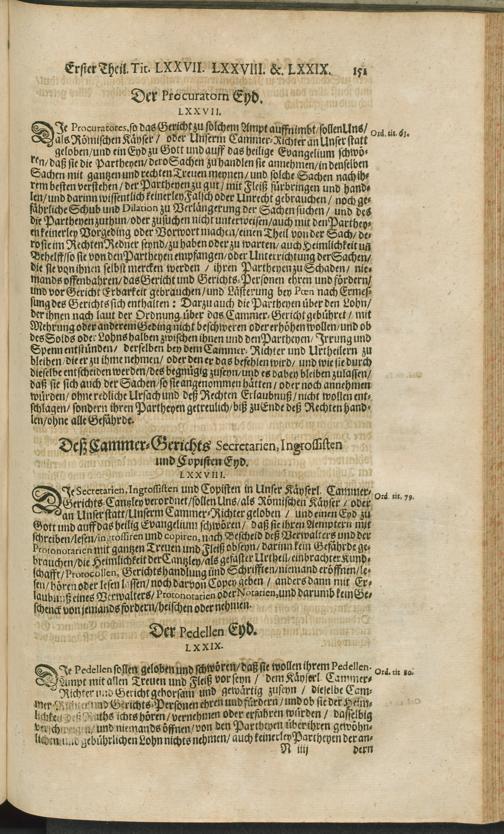 Erster Theil. Tit. LXXVII. LXXVIII. & LXXIX. 151
Der Procuratorn Eyd.
LXXVII.
DIe Procuratores, so das Gericht zu solchem Ampt auffnimbt / sollen Uns /
als Römischen Käyser / oder Unserm Cammer-Richter an Unser statt
geloben / und ein Eyd zu Gott und auff das heilige Evangelium schwö-
ren / daß sie die Partheyen / dero Sachen zu handlen sie annehmen / in denselben
Sachen mit gantzen und rechten Treuen meynen / und solche Sachen nach ih-
rem besten verstehen / der Partheyen zu gut / mit Fleiß fürbringen und hand-
len / und darinn wissentlich keinerley Falsch oder Unrecht gebrauchen / noch ge-
fährliche Schub und Dilation zu Verlängerung der Sachen suchen / und des
die Partheyen zuthun / oder zusuchen nicht unterweisen / auch mit den Parthey-
en keinerley Vorgeding oder Vorwort machen / einen Theil von der Sach / de-
ro sie im Rechten Redner seynd / zu haben oder zu warten / auch Heimlichkeit uñ
Behelff / so sie von den Partheyen empfangen / oder Unterrichtung der Sachen /
die sie von ihnen selbst mercken werden / ihren Partheyen zu Schaden / nie-
mands offenbahren / das Gericht und Gerichts-Personen ehren und fördern /
und vor Gericht Erbarkeit gebrauchen / und Lästerung bey Pœn nach Ermeß-
sung des Gerichts sich enthalten: Darzu auch die Partheyen über den Lohn /
der ihnen nach laut der Ordnung über das Cammer-Gericht gebühret / mit
Mehrung oder anderem Geding nicht beschweren oder erhöhen wollen / und ob
des Solds oder Lohns halben zwischen ihnen und den Partheyen / Irrung und
Spenn entstünden / derselben bey dem Cammer-Richter und Urtheilern zu
bleiben / die er zu ihme nehmen / oder den er das befehlen wird / und wie sie durch
dieselbe entscheiden werden / des begnügig zuseyn / und es dabey bleiben zulassen /
daß sie sich auch der Sachen / so sie angenommen hätten / oder noch annehmen
würden / ohne redliche Ursach und deß Rechten Erlaubnuß / nicht wollen ent-
schlagen / sondern ihren Partheyen getreulich / biß zu Ende deß Rechten hand-
len / ohne alle Gefährde.
Ord. tit. 63.
Deß Cammer-Gerichts Secretarien, Ingrossisten
und Copisten Eyd.
LXXVIII.
DIe Secretarien, Ingrossisten und Copisten in Unser Käyserl. Cammer-
Gerichts Cantzley verordnet / sollen Uns / als Römischen Käyser / oder
an Unser statt / Unserm Cammer-Richter geloben / und einen Eyd zu
Gott und auff das heilig Evangelium schwören / daß sie ihren Aemptern mit
schreiben / lesen / ingrossiren und copiren, nach Bescheid deß Verwalters und der
Protonotarien mit gantzen Treuen und Fleiß obseyn / darinn kein Gefährde ge-
brauchen / die Heimlichkeit der Cantzley / als gefaster Urtheil / einbrachter Kund-
schafft / Protocollen, Gerichtshandlung und Schrifften / niemand eröffnen / le-
sen / hören oder lesen lassen / noch darvon Copey geben / anders dann mit Er-
laubnuß eines Verwalters / Protonotarien oder Notarien, und darumb kein Ge-
schenck von jemands fordern / heischen oder nehmen.
Ord. tit. 79.
Der Pedellen Eyd.
LXXIX.
DIe Pedellen sollen geloben und schwören / daß sie wollen ihrem Pedellen-
Ampt mit allen Treuen und Fleiß vor seyn / dem Käyserl. Cammer-
Richter und Gericht gehorsam und gewärtig zuseyn / dieselbe Cam-
mer-Richter und Gerichts-Personen ehren und fürdern / und ob sie der Heim-
lichkeit deß Raths ichts hören / vernehmen oder erfahren würden / dasselbig
verschweigen / und niemands öffnen / von den Partheyen über ihren gewöhn-
lichen und gebührlichen Lohn nichts nehmen / auch keinerley Partheyen der an-
Ord. tit. 80.
N iiij dern